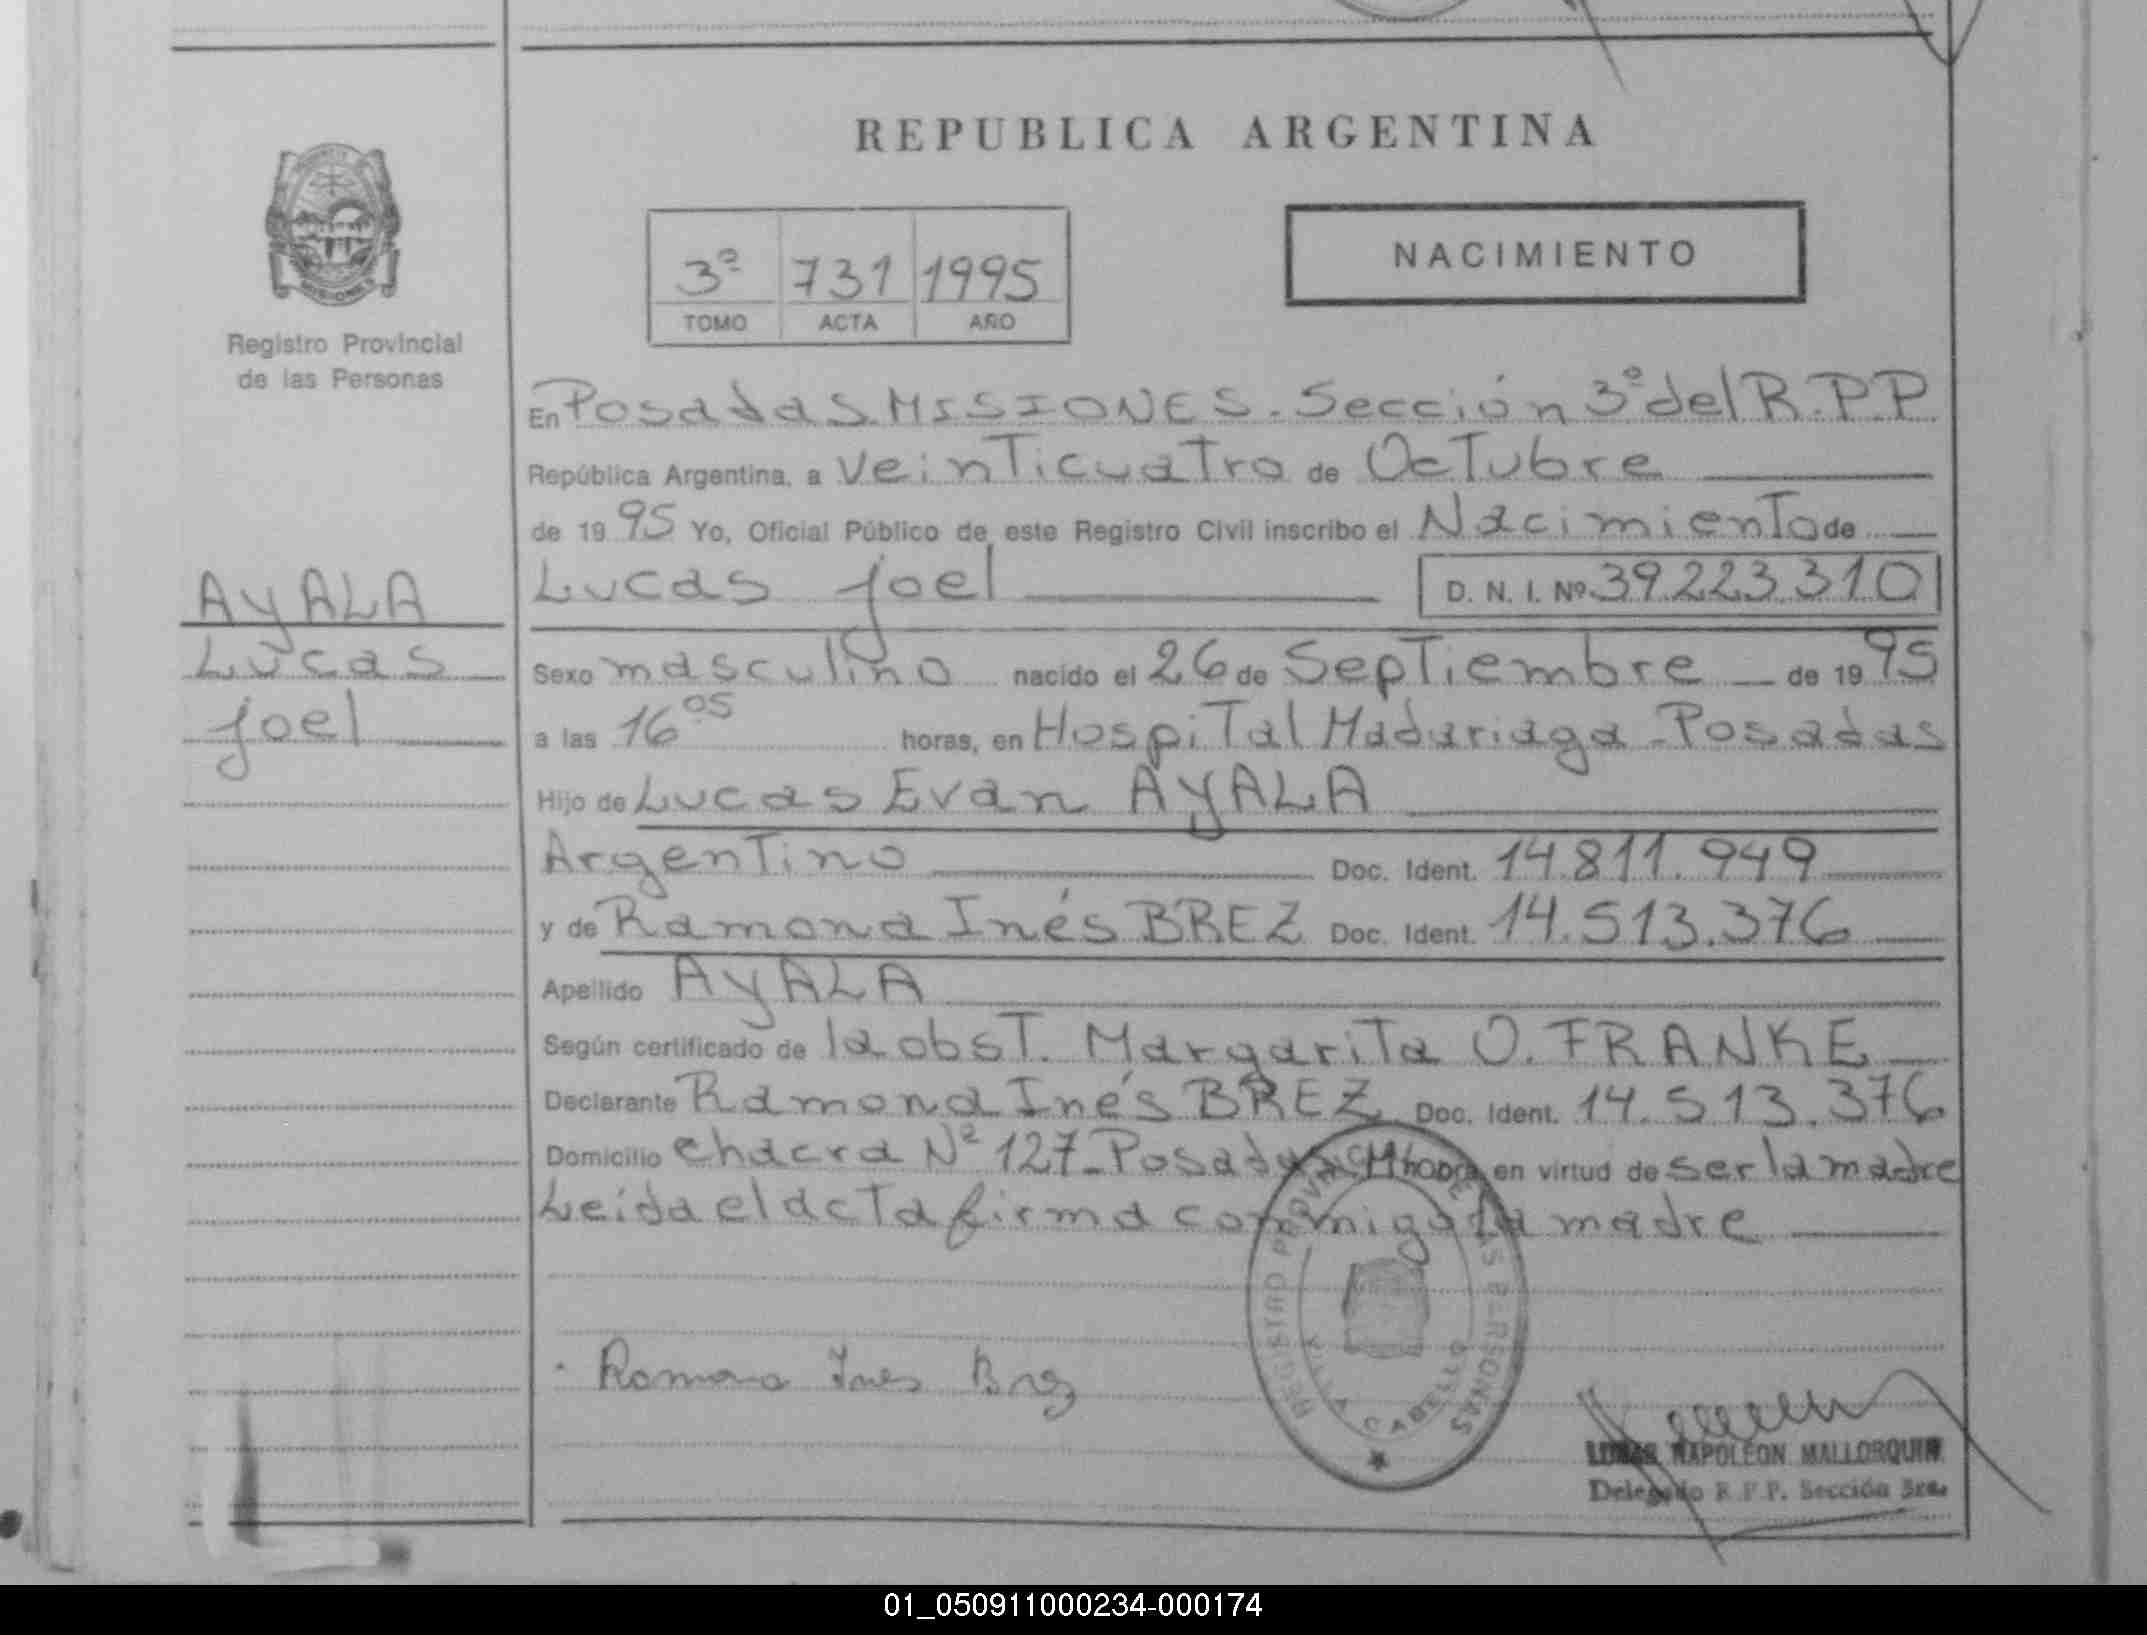 REPUBLICA ARGENTINA
MISIONES
Registro Provincial
de las Personas
3ª 731 1995
TOMO ACTA AÑO
NACIMIENTO
AYALA
Lucas
Joel
En Posadas MISIONES. Sección 3ª del R.P.P
República Argentina, a veinticuatro de Octubre
de 1995 Yo, Oficial Público de este Registro Civil inscribo el Nacimiento de
Lucas Joel D. N. I. Nº 39.223.310
Sexo masculino nacido el 26 de Septiembre de 1995
a las 16 05 horas, en Hospital Madariaga - Posadas
Hijo de Lucas Evan AYALA
Argentino Doc. Ident. 14.811.949
y de Ramona Inés BREZ Doc. Ident. 14.513.376
Apellido AYALA
Según certificado de la obst. Margarita O. FRANKE
Declarante Ramona Inés BREZ Doc. Ident. 14.513.376
Domicilio chacra Nº 127 - Posadas en virtud de ser la madre
Leida el acta firma conmigo la madre
REGISTRO PROVINCIAL DE LAS PERSONAS
VILLA CABELLO
Ramona Ines Brez
NAPOLEON MALLORQUIN
Delegado R.P.P. Sección 3ra.
01_050911000234-000174